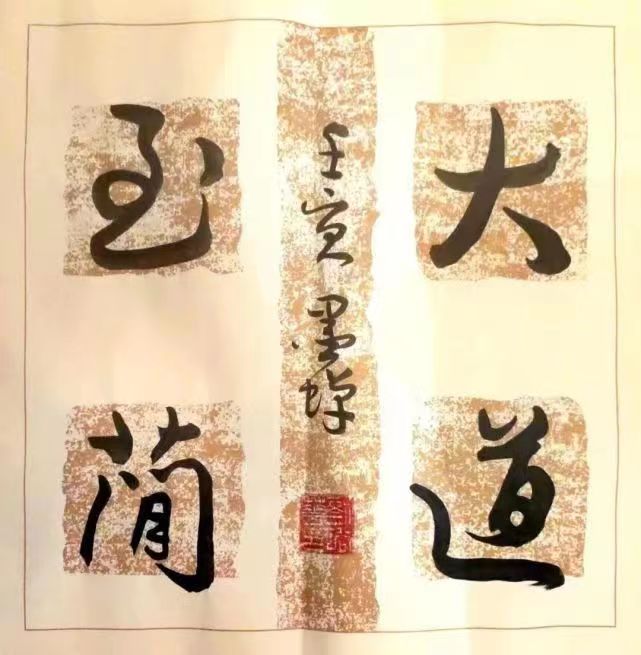 大道
至简
壬寅 墨蝉